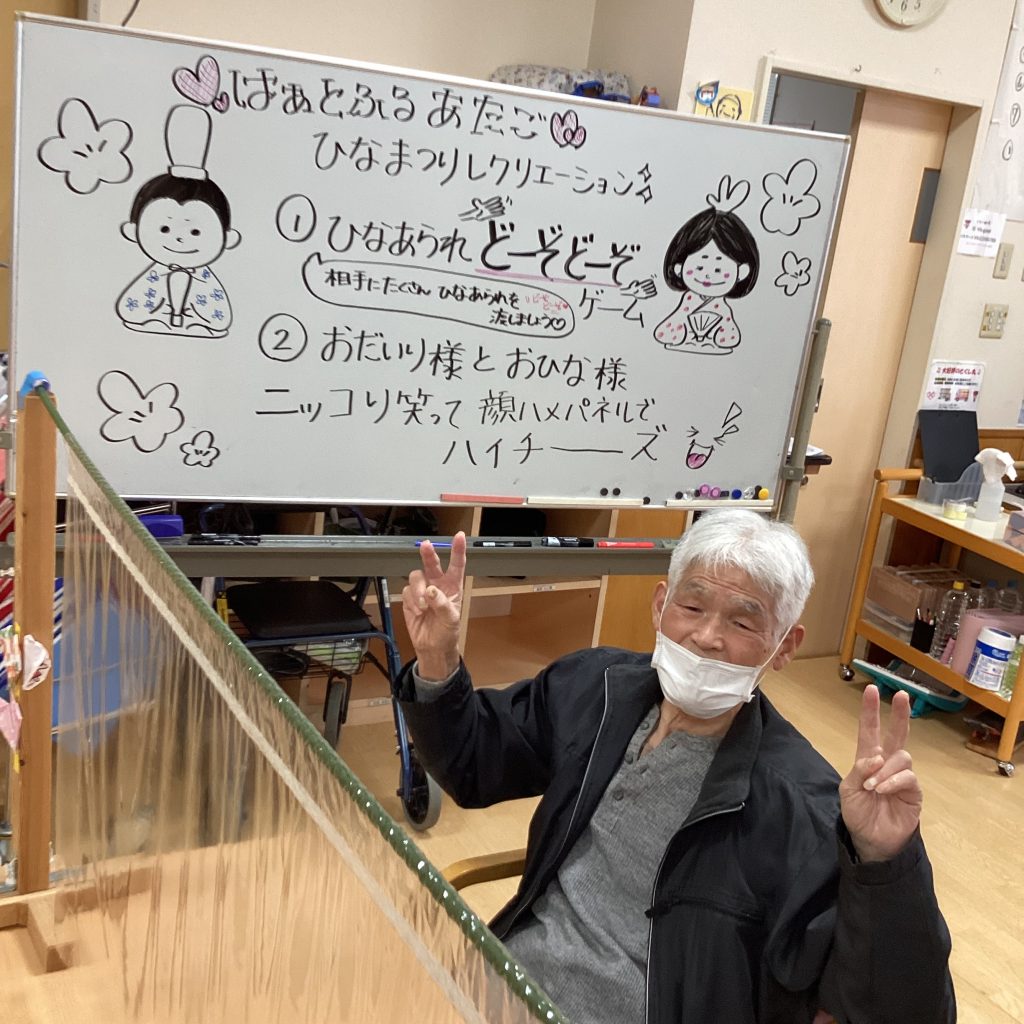 はぁとふるあたご
ひなまつりレクリエーション
① ひなあられ どーぞどーぞ
ゲーム
相手にたくさん ひなあられを
渡しましょう♡
② おだいり様と おひな様
ニッコリ笑って 顔ハメパネルで
ハイチーーズ